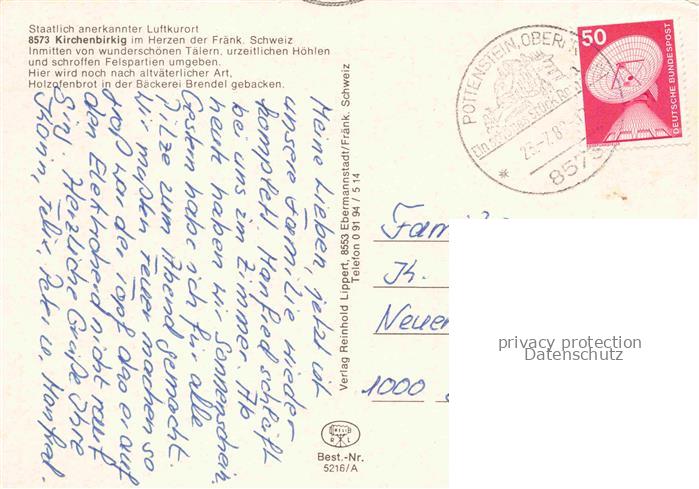 Staatlich anerkannter Luftkurort
8573 Kirchenbirkig im Herzen der Fränk. Schweiz
Inmitten von wunderschönen Tälern, urzeitlichen Höhlen
und schroffen Felspartien umgeben.
Hier wird noch nach altväterlicher Art,
Holzofenbrot in der Bäckerei Brendel gebacken.
Meine Lieben, jetzt ist
unsere Familie wieder
komplett. Manfred schläft
bei uns im Zimmer. Ab
heute haben wir Sonnenschein.
Gestern habe ich für alle
Pilze zum Abend gemacht.
Wir mußten Feuer machen so
groß war der Topf das er auf
den Elektroherd nicht rauf
ging. Herzliche Grüße Ihre
Felix, Peter u. Manfred.
Verlag Reinhold Lippert, 8553 Ebermannstadt/Fränk. Schweiz
Telefon 0 91 94 / 5 14
R L
Best.-Nr.
5216/A
POTTENSTEIN, OBERFR
Ein schönes Stück
8573
50
DEUTSCHE BUNDESPOST
Fami
K.
Neuer
1000
privacy protection
Datenschutz